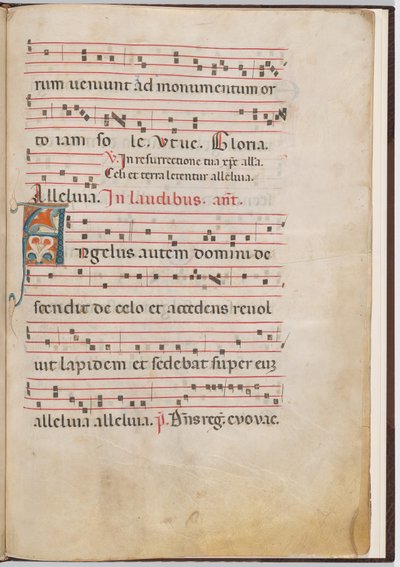 rum veniunt ad monumentum or
to iam so le. Vt ue. Gloria.
V. In resurrectione tua xp̄e all'a.
Celi et terra letentur alleluia.
Alleluia. In laudibus. añt.
Angelus autem domini de
scendit de celo et accedens reuol
uit lapidem et sedebat super eum
alleluia alleluia. p̄. Dn̄s reg̃. euouae.